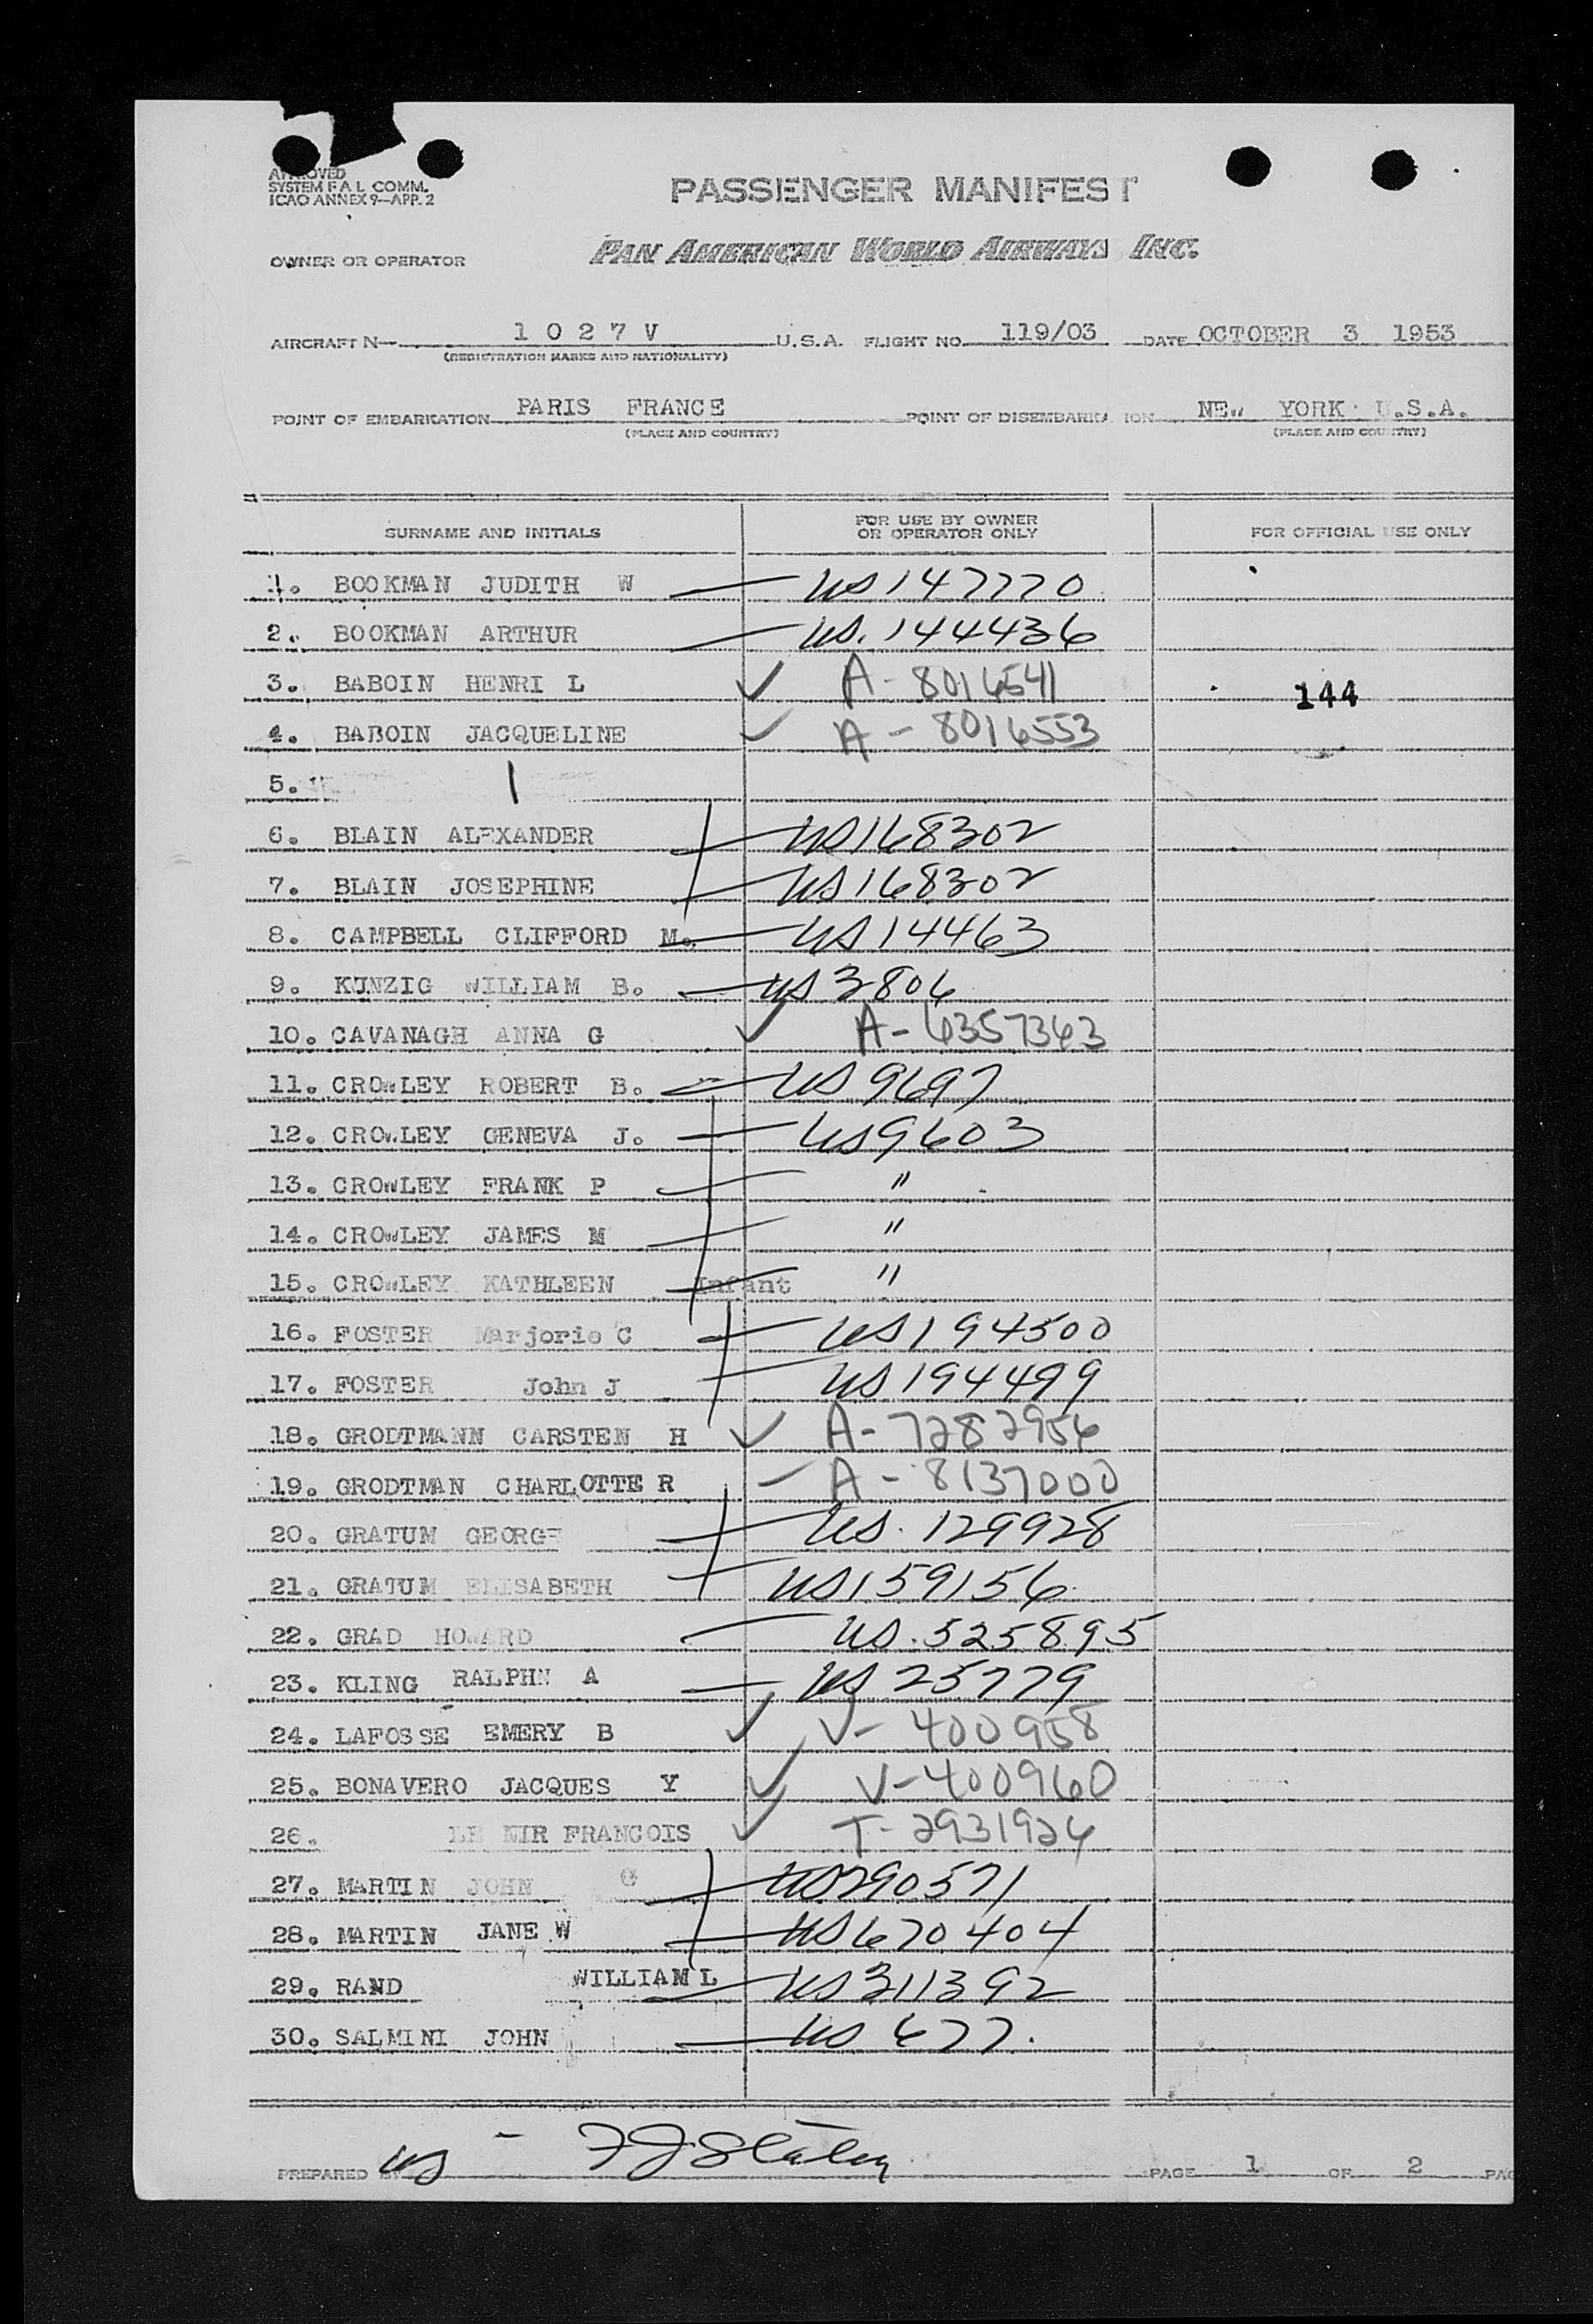 APPROVED
SYSTEM F A L COMM.
ICAO ANNEX 9—APP. 2
PASSENGER MANIFEST
OWNER OR OPERATOR PAN AMERICAN WORLD AIRWAYS INC.
AIRCRAFT N— 1 0 2 7 V U.S.A. FLIGHT NO. 119/03 DATE OCTOBER 3 1953
(REGISTRATION MARKS AND NATIONALITY)
POINT OF EMBARKATION PARIS FRANCE POINT OF DISEMBARK ION NEW YORK U.S.A.
(PLACE AND COUNTRY) (PLACE AND COUNTRY)
SURNAME AND INITIALS FOR USE BY OWNER OR OPERATOR ONLY FOR OFFICIAL USE ONLY
1. BOOKMAN JUDITH W — US 147770
2. BOOKMAN ARTHUR — US. 144436
3. BABOIN HENRI L ✓ A - 8016541 144
4. BABOIN JACQUELINE ✓ A - 8016553
5.
6. BLAIN ALEXANDER — US 168302
7. BLAIN JOSEPHINE — US 168302
8. CAMPBELL CLIFFORD M. — US 14463
9. KUNZIG WILLIAM B. — US 3806
10. CAVANAGH ANNA G ✓ A - 6357363
11. CROWLEY ROBERT B. — US 9697
12. CROWLEY GENEVA J. — US 9603
13. CROWLEY FRANK P — "
14. CROWLEY JAMES M — "
15. CROWLEY KATHLEEN Infant "
16. FOSTER Marjorie C — US 194500
17. FOSTER John J — US 194499
18. GRODTMANN CARSTEN H ✓ A - 7282956
19. GRODTMAN CHARLOTTE R — A - 8137000
20. GRATUM GEORGE — US. 129928
21. GRATUM ELISABETH — US 159156
22. GRAD HOWARD — US. 525895
23. KLING RALPHN A — US 25779
24. LAFOSSE EMERY B ✓ V - 400958
25. BONAVERO JACQUES Y ✓ V - 400960
26. LE NIR FRANCOIS ✓ T - 2931926
27. MARTIN JOHN G — US 290571
28. MARTIN JANE W — US 670404
29. RAND WILLIAM L — US 311392
30. SALMINI JOHN — US 677.
PREPARED BY US - FJ Staley PAGE 1 OF 2 PAG